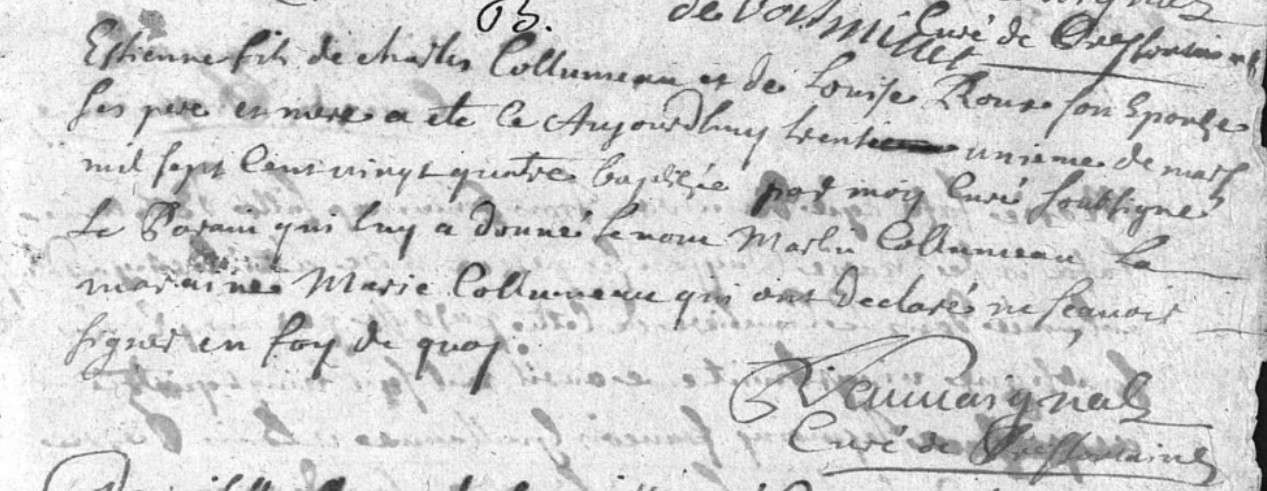 B.
Curé de
Estienne fils de charles Collumeau et de Louise Roux son Epouse
ses pere et mere a ete Ce Aujourdhuy trente unieme de mars
mil sept Cent vingt quatre baptisée par moy Curé soubsigné
Le Parain qui luy a donné le nom Martin Collumeau La
maraine Marie Collumeau qui ont declaré ne sçavoir
signer en foy de quoy.
Curé de